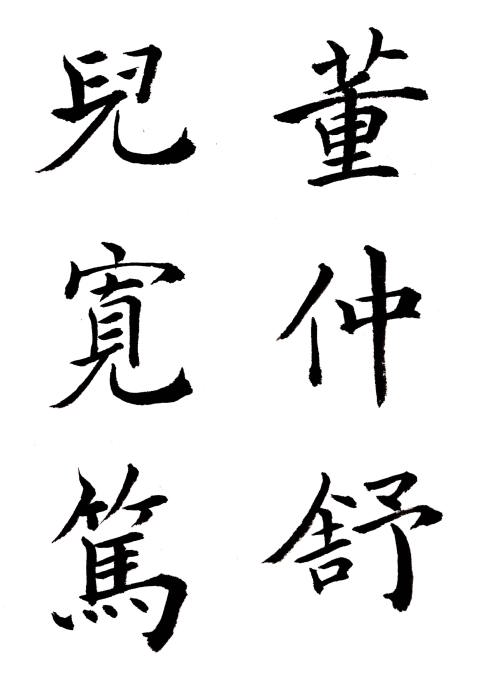 董仲舒
兒寬篤